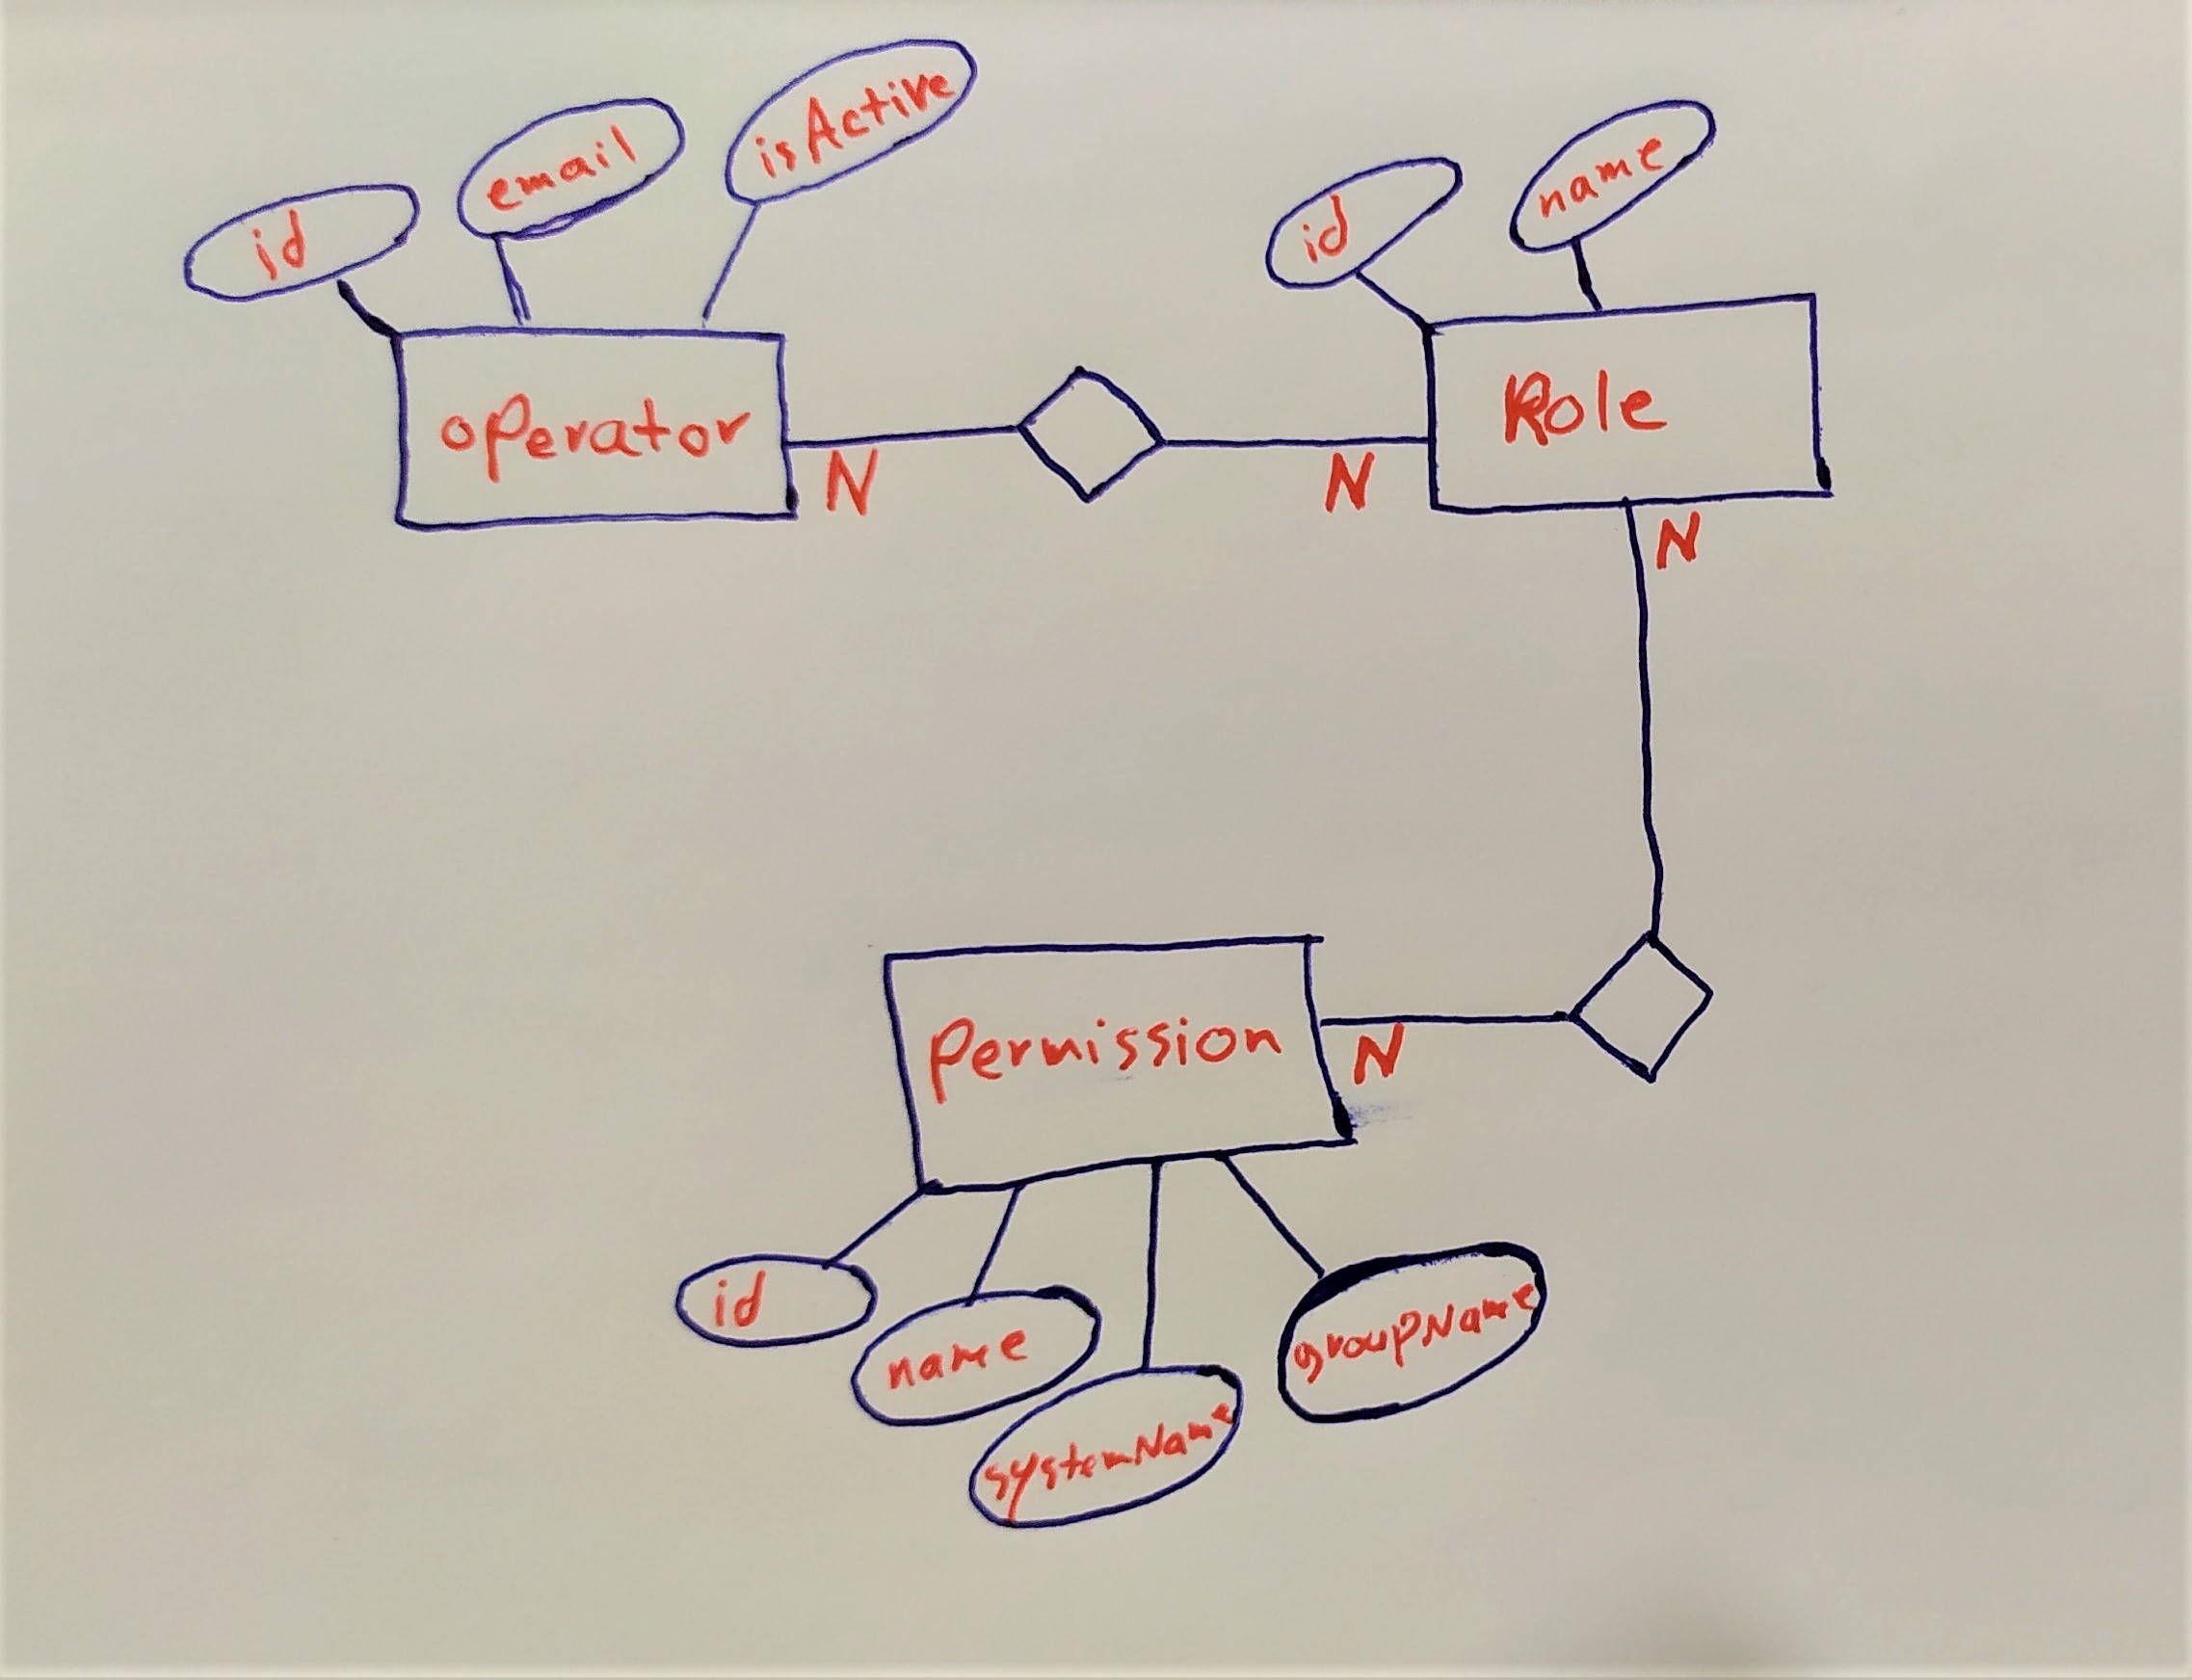 id
email
isActive
operator
N
N
id
name
Role
N
Permission
N
id
name
systemName
groupName